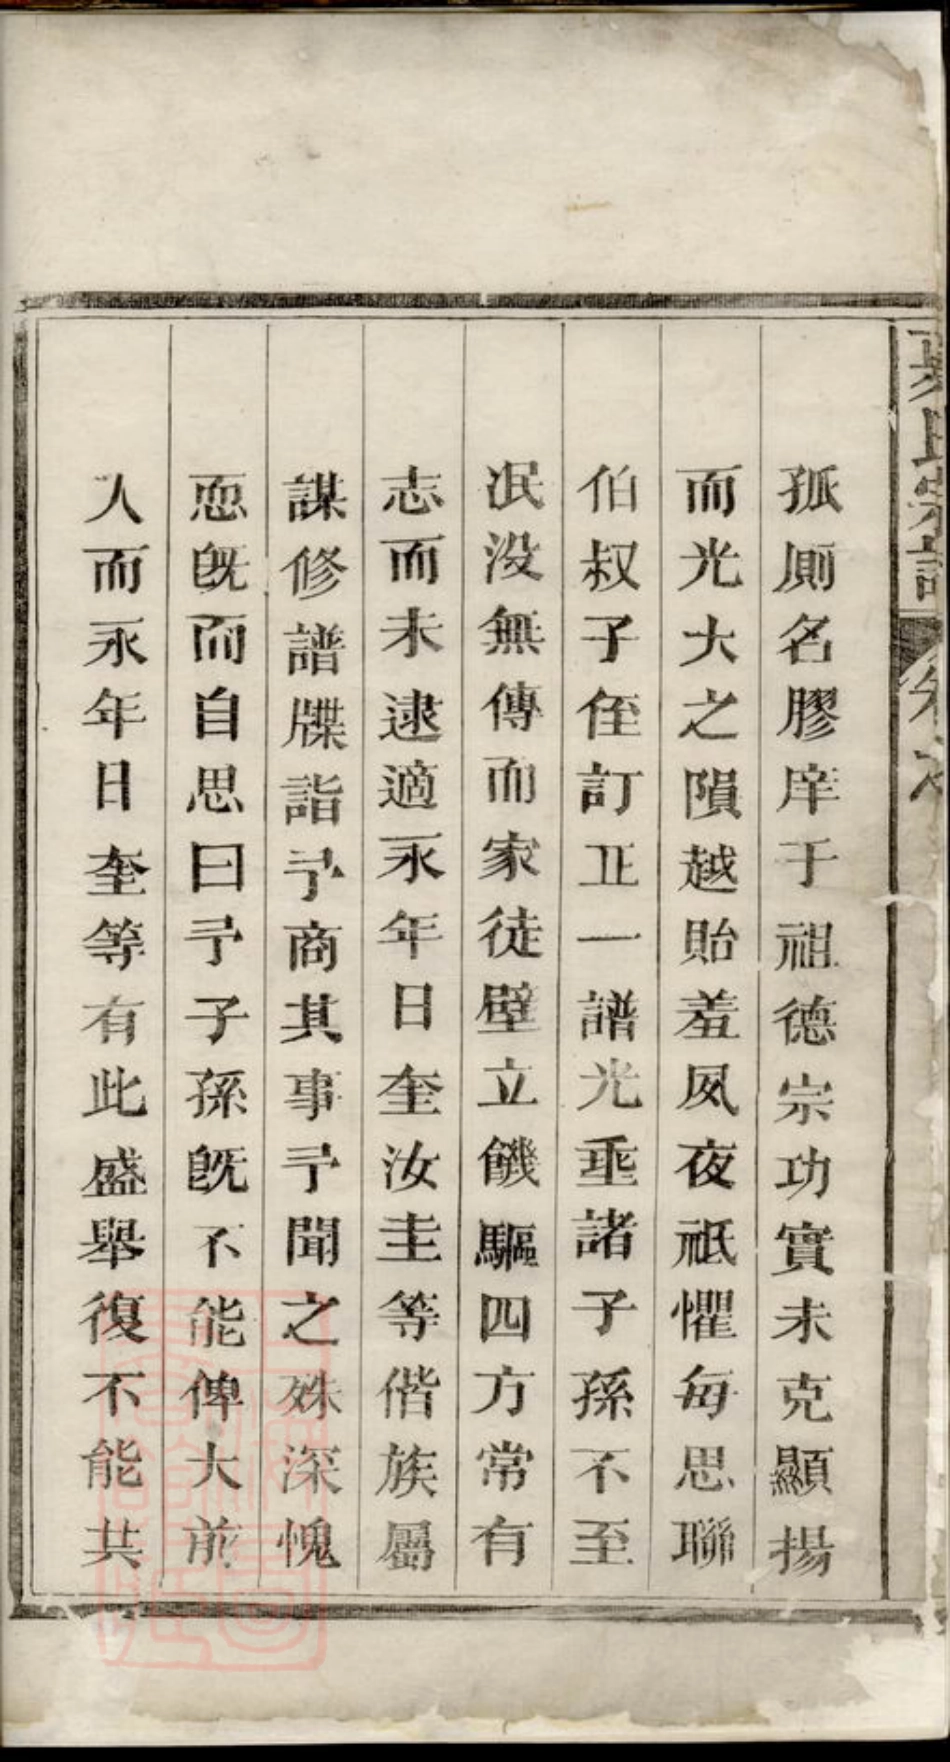 氏宗譜
孤厠名膠庠于祖德宗功實未克顯揚
而光大之隕越貽羞夙夜祇懼每思聯
伯叔子侄訂正一譜光垂諸子孫不至
泯没無傳而家徒壁立饑驅四方常有
志而未逮適永年日奎汝圭等偕族屬
謀修譜牒詣予商其事予聞之殊深愧
恧旣而自思曰予子孫旣不能俾大前
人而永年日奎等有此盛舉復不能共